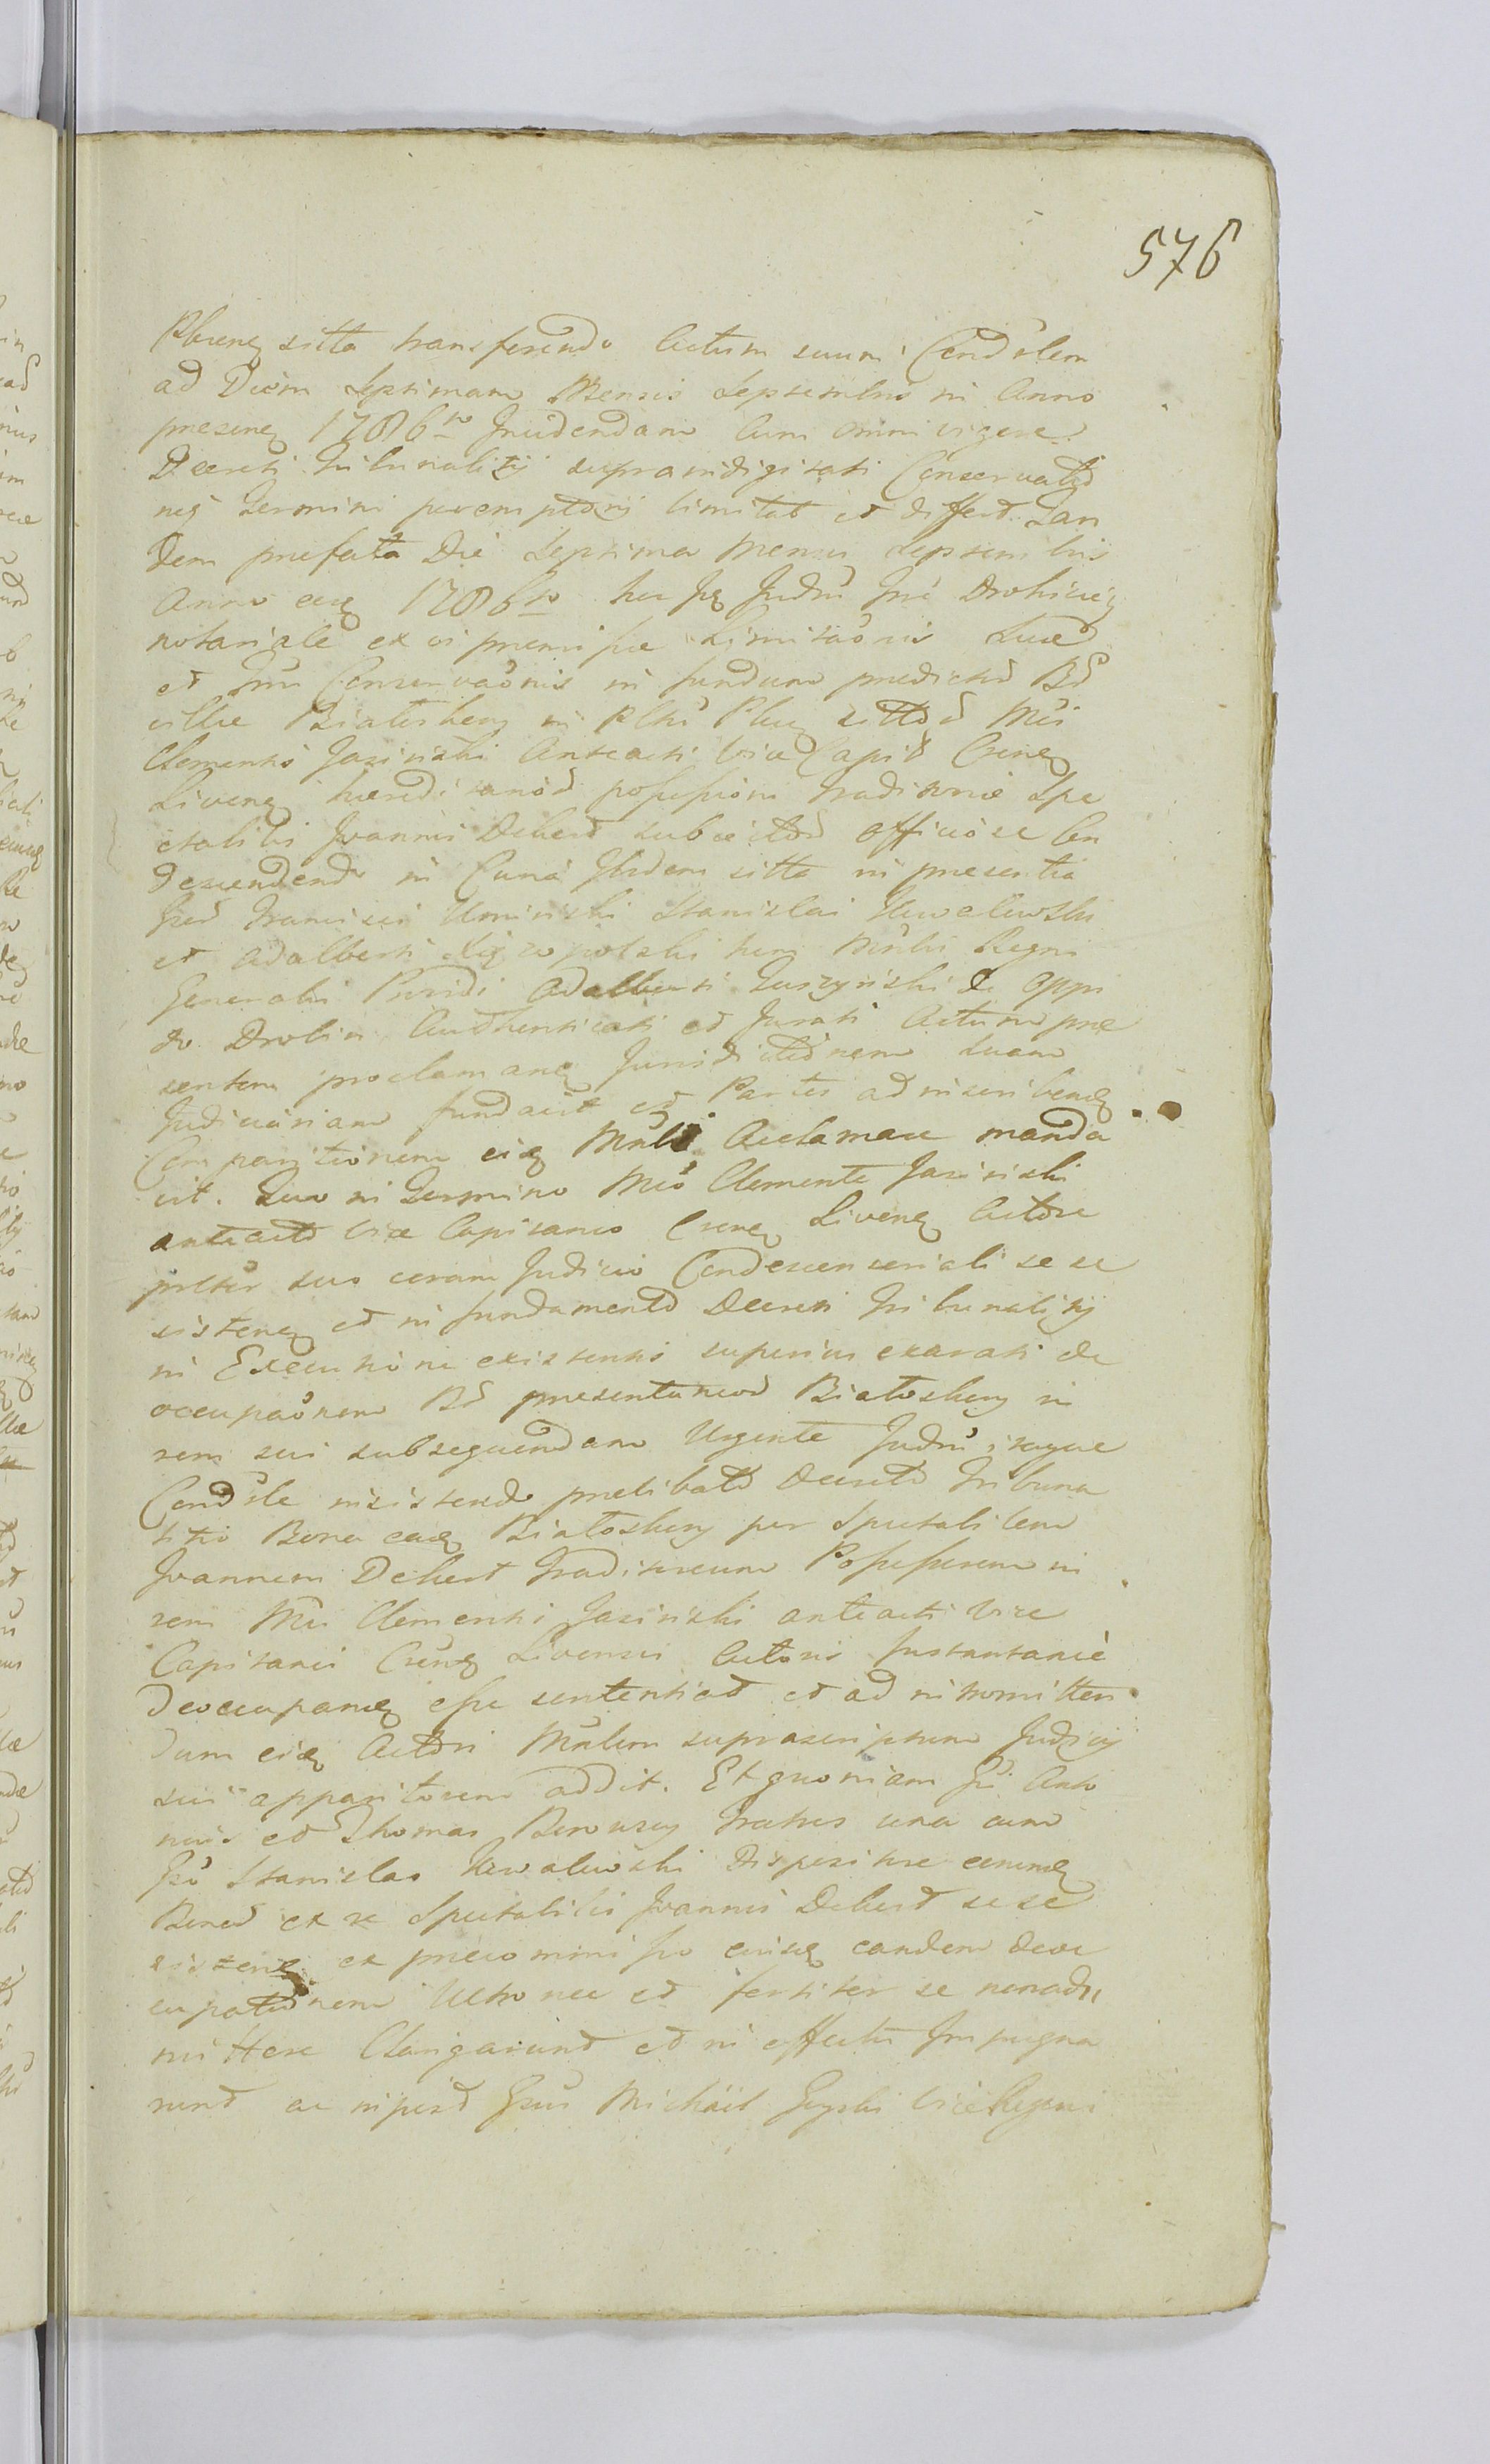 576
Pbreng sitta transferendo Actum suum Condslem
ad Diem Septimam Mensis Septembris in Anno
presenq 1786to Incidendam cum omni vigore
Decreti Tribunalitij supraindigitati Conservatio
nis Termini peremptorij limitat et differt. Tan
dem prefata Die Septima Mensis Septembris
Anno eoq 1786to hocce Judiū Drohicieñ
notariale ex vi premissae Limitaōnis Suae
et Conservaōnis in fundum predictoȓ Bȓ
villae Białoskury in
Clementis Jasinski Anteacti Vice Capit
Livenq haereditarioȓ possessioni traditoriae Spe
ctabilis Joannis Dekert subiectoȓ officiose Con
descendendo in Curia Ibidem sitta in presentia
Francisci Uminski Stanislai Kowalewski
et Adalberti tum Mnlis Regni
Generalis Providi Adalberti Guszynski de Oppi
do Drohin Authenticati et Jurati Actum prae
sentem proclamanq Jurisdictionem suam
Judiciariam fundavit et Partes ad inscribenq
Comparitionem eiq Mnli Acclamare manda
vit. Quo in Termino Mco Clemente Jasinski
anteacto Vice Capitaneo Livenq Actore
suo coram Judicio Condescensoriali sese
sistenq et in fundamento Decreti Tribunalitij
in Executione existentis superius exarati de
occupaōnem Bȓ presentaneoȓ Białoskury in
rem sui subsequendam Urgente Judiū itaque
Condsle insistendo prelibato Decreto Tribuna
litio Bona eaq Białoskury per Spectabilem
Joannem Dekert Traditoreum Possessorem in
rem Mci Clementis Jasinski anteacti Vice
Capitanei Livensis Actoris Instantanie
deoccupanq esse sententiat et ad intromitten
dum eiq Actori Mnlem suprascriptum Judicij
sui apparitorem addit. Et quoniam Anto
nius et Thomas Fratres una cum
Gso Stanislao Kowalewski Dispositore eorumq
Bonoȓ ex re Spectabilis Joannis Dekert sese
sistenq ex eandem deoc
cupationem Ultronee et fortiter se non ad
mittere Clangarunt et in effectu Impugna
runt ac Michael Vice Regens